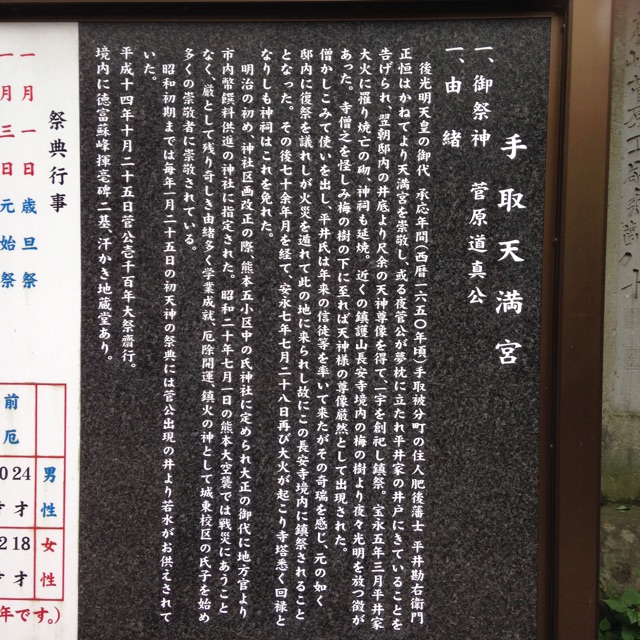 手取天満宮
一、御祭神　菅原道真公
一、由　緒
後光明天皇の御代　承応年間(西暦一六五〇年頃)手取被分町の住人肥後藩士　平井勘右衛門
正恒はかねてより天満宮を崇敬し、或る夜菅公が夢枕に立たれ平井家の井戸にきていることを
告げられ、翌朝邸内の井底より尺余の天神尊像を得て、一宇を創祀し鎮祭。宝永五年三月平井家
大火に罹り焼亡の砌、神祠も延焼。近くの鎮護山長安寺境内の梅の樹より夜々光明を放つ徴が
あった。寺僧之を怪しみ梅の樹の下に至れば天神様の尊像厳然として出現された。
僧かしこみて使いを出し、平井氏は年来の信徒等を率いて来たがその奇瑞を感じ、元の如く
邸内に復祭を議れしが火災を遁れて此の地に来られし故にこの長安寺境内に鎮祭されること
となった。その後七十余年月を経て、安永七年七月二十八日再び大火が起こり寺塔悉く回禄と
なりしも神祠はこれを免れた。
明治の初め、神社区画改正の際、熊本五小区中の氏神社に定められ大正の御代に地方官より
市内幣饌料供進の神社に指定された。昭和二十年七月一日の熊本大空襲では戦災にあうこと
なく、厳として残り奇しき由緒多く学業成就、厄除開運、鎮火の神として城東校区の氏子を始め
多くの崇敬者に崇敬されている。
昭和初期までは毎年一月二十五日の初天神の祭典には菅公出現の井より若水がお供えされて
いた。
平成十四年十月二十五日菅公壱千百年大祭齋行。
境内に徳富蘇峰揮亳碑二基、汗かき地蔵堂あり。
祭典行事
一月一日歳旦祭
一月三日元始祭
前厄
男性
24才
女性
18才
年です。)